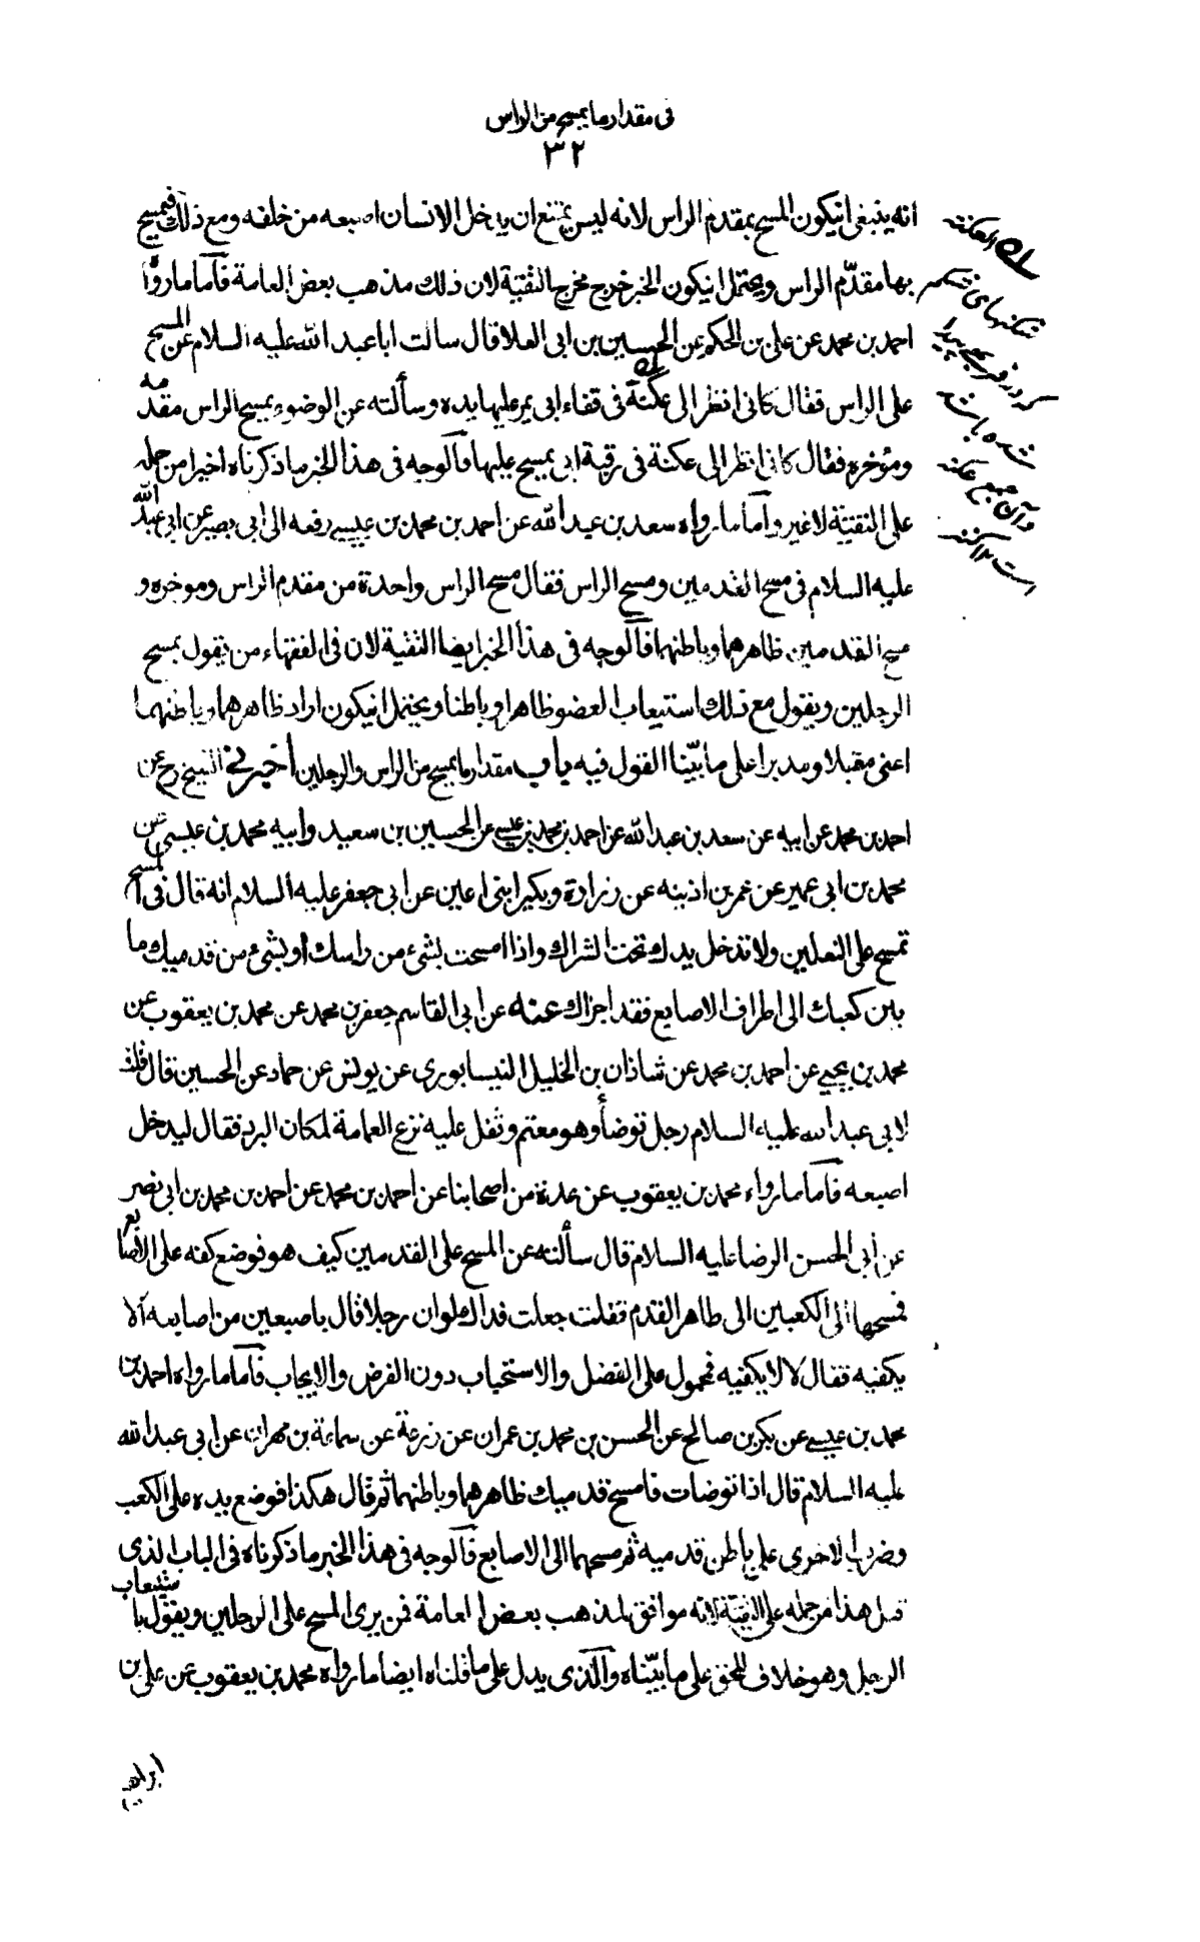 فى مقدار ما يمسح من الراس
٣٢
انه ينبغى ان يكون المسح بمقدم الراس لانه ليس يمتنع ان يدخل الانسان اصبعه من خلفه ومع ذلك فيمسح
بها مقدّم الراس ويحتمل ان يكون الخبر خرج مخرج التقية لان ذلك مذهب بعض العامة فآما ما رواه
احمد بن محمد عن على بن الحكم عن الحسين بن ابى العلا قال سالت ابا عبد الله عليه السلام عن المسح
على الراس فقال كانى انظر الى عكنة فى قفاء ابى يمر عليها يده وسألته عن الوضوء يمسح الراس مقدمه
ومؤخره فقال كانى انظر الى عكنة فى رقبة ابى يمسح عليها فآلوجه فى هذا الخبر ما ذكرناه اخيرا من حمله
على التقيّة لا غير وآما ما رواه سعد بن عبد الله عن احمد بن محمد بن عيسى رفعه الى ابى بصير عن ابى عبد الله
عليه السلام فى مسح القدمين ومسح الراس فقال مسح الراس واحدة من مقدم الراس وموخره و
مسح القدمين ظاهرهما وباطنهما فآلوجه فى هذا الخبر ايضا التقية لان فى الفقهاء من يقول بمسح
الرجلين ويقول مع ذلك استيعاب العضو ظاهرا وباطنا ويحتمل ان يكون اراد ظاهرهما وباطنهما
اعنى مقبلا ومدبرا على ما بيّنا القول فيه باب مقدار ما يمسح من الراس والرجلين اخبرنى الشيخ رح عن
احمد بن محمد عن ابيه عن سعد بن عبد الله عن احمد بن محمد بن عيسى عن الحسين بن سعيد وابيه محمد بن عيسى عن
محمد بن ابى عمير عن عمر بن اذينه عن زرارة وبكير ابنى اعين عن ابى جعفر عليه السلام انه قال فى المسح
تمسح على النعلين ولا تدخل يدك تحت الشراك واذا امسحت بشىء من راسك او بشىء من قدميك ما
بين كعبك الى اطراف الاصابع فقد اجزاك عنه عن ابى القاسم جعفر بن محمد عن محمد بن يعقوب عن
محمد بن يحيى عن احمد بن محمد عن شاذان بن الخليل النيسابورى عن يونس عن حماد عن الحسين قال قلت
لابى عبد الله عليه السلام رجل توضأ وهو معتم وثقل عليه نزع العمامة لمكان البرد فقال ليدخل
اصبعه فآما ما رواه محمد بن يعقوب عن عدة من اصحابنا عن احمد بن محمد عن احمد بن محمد بن ابى نصر
عن أبى الحسن الرضا عليه السلام قال سألته عن المسح على القدمين كيف هو فوضع كفه على الاصابع
فمسحها الى الكعبين الى ظاهر القدم فقلت جعلت فداك لو ان رجلا قال باصبعين من اصابعه آلا
يكفيه فقال لا لا يكفيه فمحمول على الفضل والاستحباب دون الفرض والايجاب فآما ما رواه احمد بن
محمد بن عيسى عن بكر بن صالح عن الحسن بن محمد بن عمران عن زرعة عن سماعة بن مهران عن ابى عبد الله
عليه السلام قال اذا توضات فامسح قدميك ظاهرهما وباطنهما ثم قال هكذا فوضع يده على الكعب
وضرب الاخرى على باطن قدميه ثم مسحهما الى الاصابع فآلوجه فى هذا الخبر ما ذكرناه فى الباب الذى
قبل هذا من حمله على التقية لانه موافق لمذهب بعض العامة فمن يرى المسح على الرجلين ويقول باستيعاب
الرجل وهو خلاف للحق على ما بيّناه وآلّذى يدل على ما قلناه ايضا ما رواه محمد بن يعقوب عن على بن
ابراهيم
العكنة
شكنهاى شكم
كه در فربهى پيدا
شده باشد
وآن جمع عكنه
است ١٢ كنز